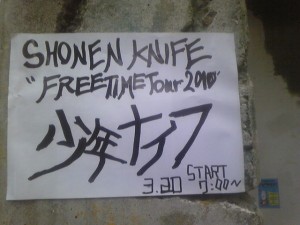 SHONEN KNIFE
"FREETIME Tour 2010"
少年ナイフ
3.20 START
7:00~